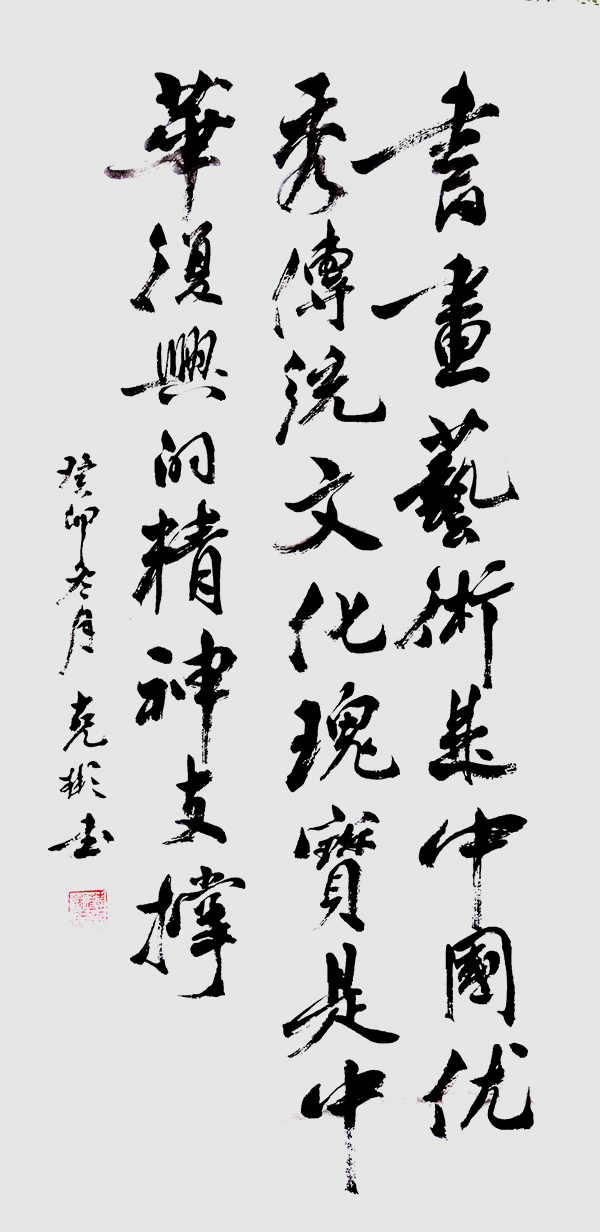 書畫藝術是中國优
秀傳统文化瑰寶是中
華復興的精神支撑
癸卯冬月克彬書